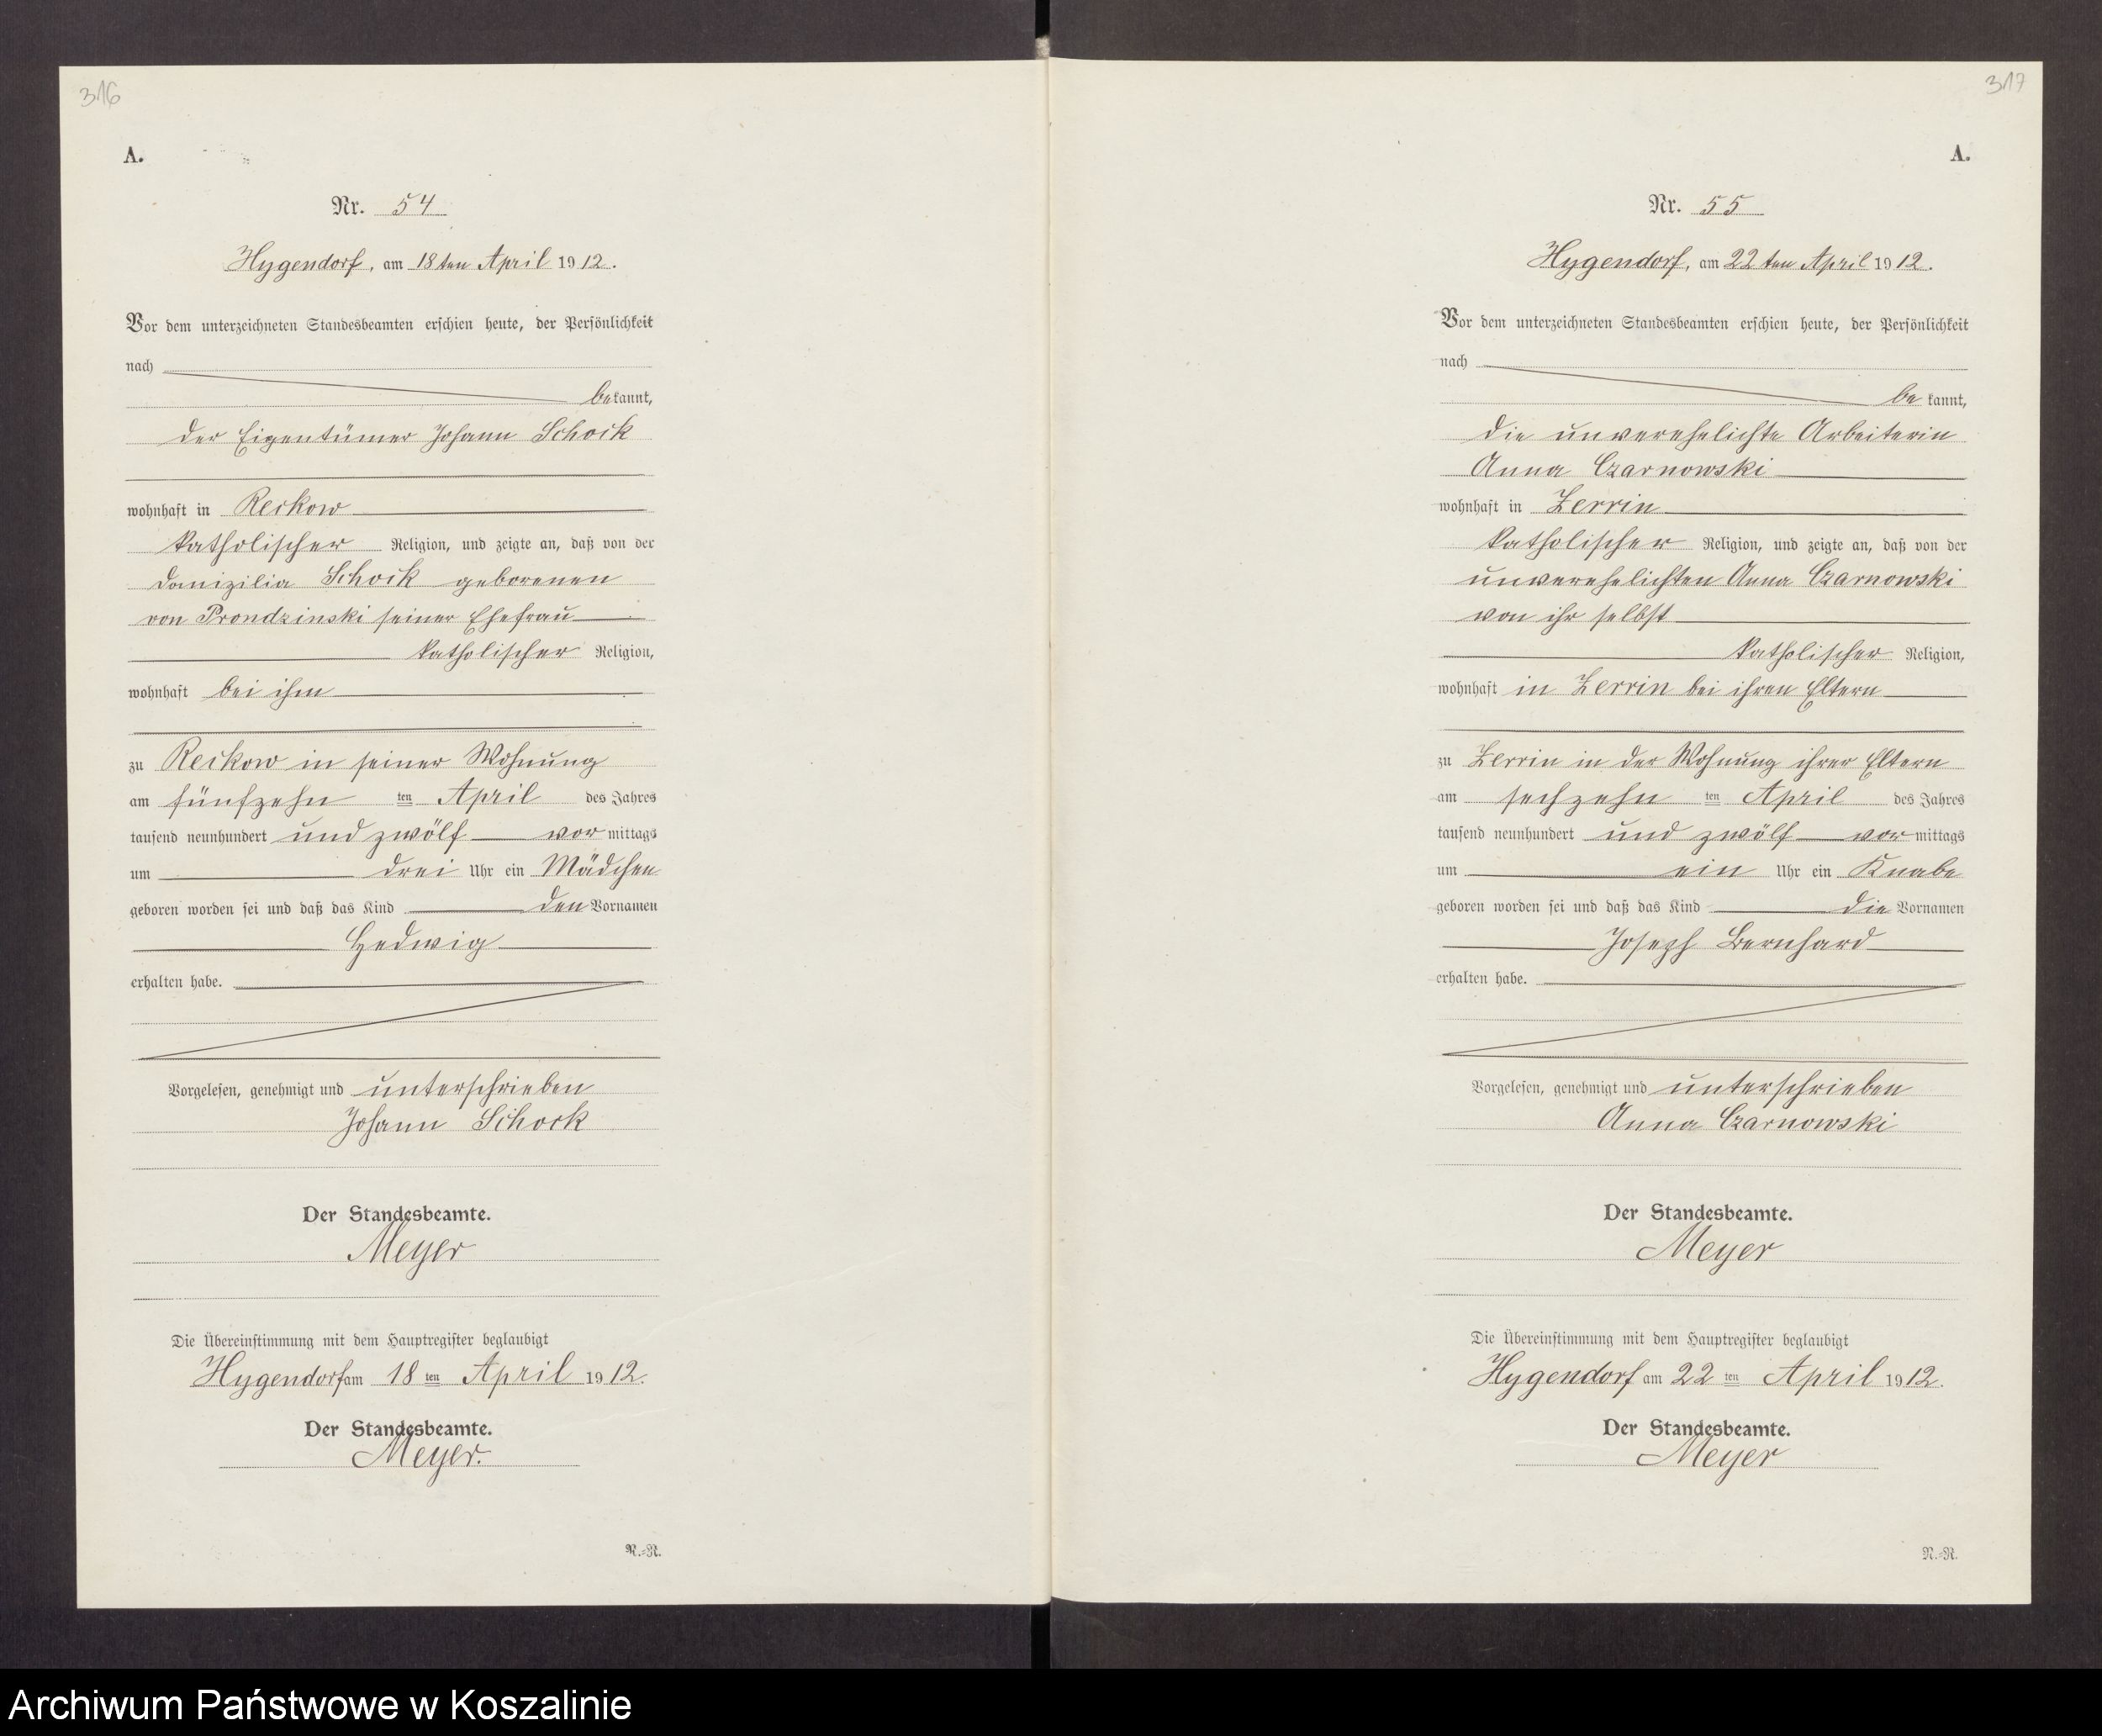 316
A.
Nr. 54
Hygendorf, am 18ten April 1912.
Vor dem unterzeichneten Standesbeamten erschien heute, der Persönlichkeit
nach
bekannt,
der Eigentümer Johann Schock
wohnhaft in Reckow
katholischer Religion, und zeigte an, daß von der
Schock geborenen
von Prondzinski seiner Ehefrau
katholischer Religion,
wohnhaft bei ihm
zu Reckow in seiner Wohnung
am fünfzehn ten April des Jahres
tausend neunhundert und zwölf vor mittags
um drei Uhr ein Mädchen
geboren worden sei und daß das Kind den Vornamen
Hedwig
erhalten habe.
Vorgelesen, genehmigt und unterschrieben
Johann Schock
Der Standesbeamte.
Meyer
Die Übereinstimmung mit dem Hauptregister beglaubigt
Hygendorf am 18 ten April 1912.
Der Standesbeamte.
Meyer.
R.=R.
317
A.
Nr. 55
Hygendorf, am 22ten April 1912.
Vor dem unterzeichneten Standesbeamten erschien heute, der Persönlichkeit
nach
bekannt,
die unverehelichte Arbeiterin
Anna Czarnowski
wohnhaft in Zerrin
katholischer Religion, und zeigte an, daß von der
unverehelichten Anna Czarnowski
von ihr selbst
katholischer Religion,
wohnhaft in Zerrin bei ihren Eltern
zu Zerrin in der Wohnung ihrer Eltern
am sechzehn ten April des Jahres
tausend neunhundert und zwölf vor mittags
um ein Uhr ein Knabe
geboren worden sei und daß das Kind die Vornamen
Joseph Bernhard
erhalten habe.
Vorgelesen, genehmigt und unterschrieben
Anna Czarnowski
Der Standesbeamte.
Meyer
Die Übereinstimmung mit dem Hauptregister beglaubigt
Hygendorf am 22 ten April 1912.
Der Standesbeamte.
Meyer
R.=R.
Archiwum Państwowe w Koszalinie